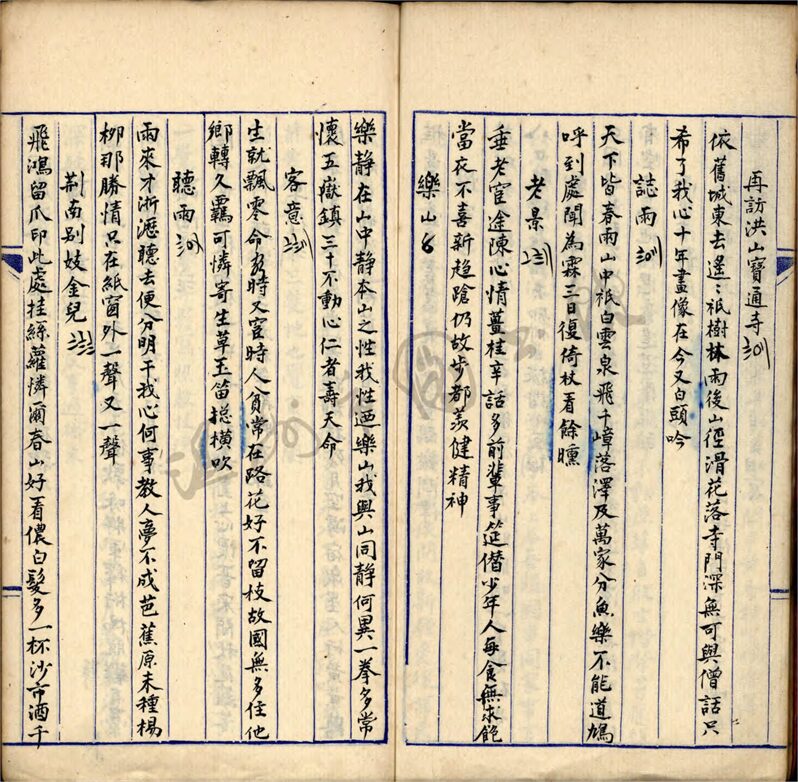 再訪洪山寶通寺
依舊城東去遙〻祇樹林雨後山徑滑花落寺門深無可與僧話只
希了我心十年畫像在今又白頭吟
誌雨
天下皆春雨山中祇白雲泉飛千嶂落澤及萬家分魚樂不能道鳩
呼到處聞為霖三日復倚杖看餘曛
老景
垂老宦途陳心情薑桂辛話多前輩事筵僭少年人每食無求飽
當衣不喜新趨蹌仍故步都羨健精神
樂山
樂静在山中静本山之性我性迺樂山我與山同静何異一拳多常
懷五嶽鎮三十不動心仁者壽天命
客意
生就飄零命多時又宦時人貧常在路花好不留枝故國無多住他
鄉轉久羈可憐寄生草玉笛摠橫吹
聽雨
雨來才淅瀝聽去便分明干我心何事教人夢不成芭蕉原未種楊
柳那勝情只在紙窗外一聲又一聲
荆南别妓金兒
飛鴻留爪印此處挂絲蘿憐爾春山好看儂白髮多一杯沙市酒千